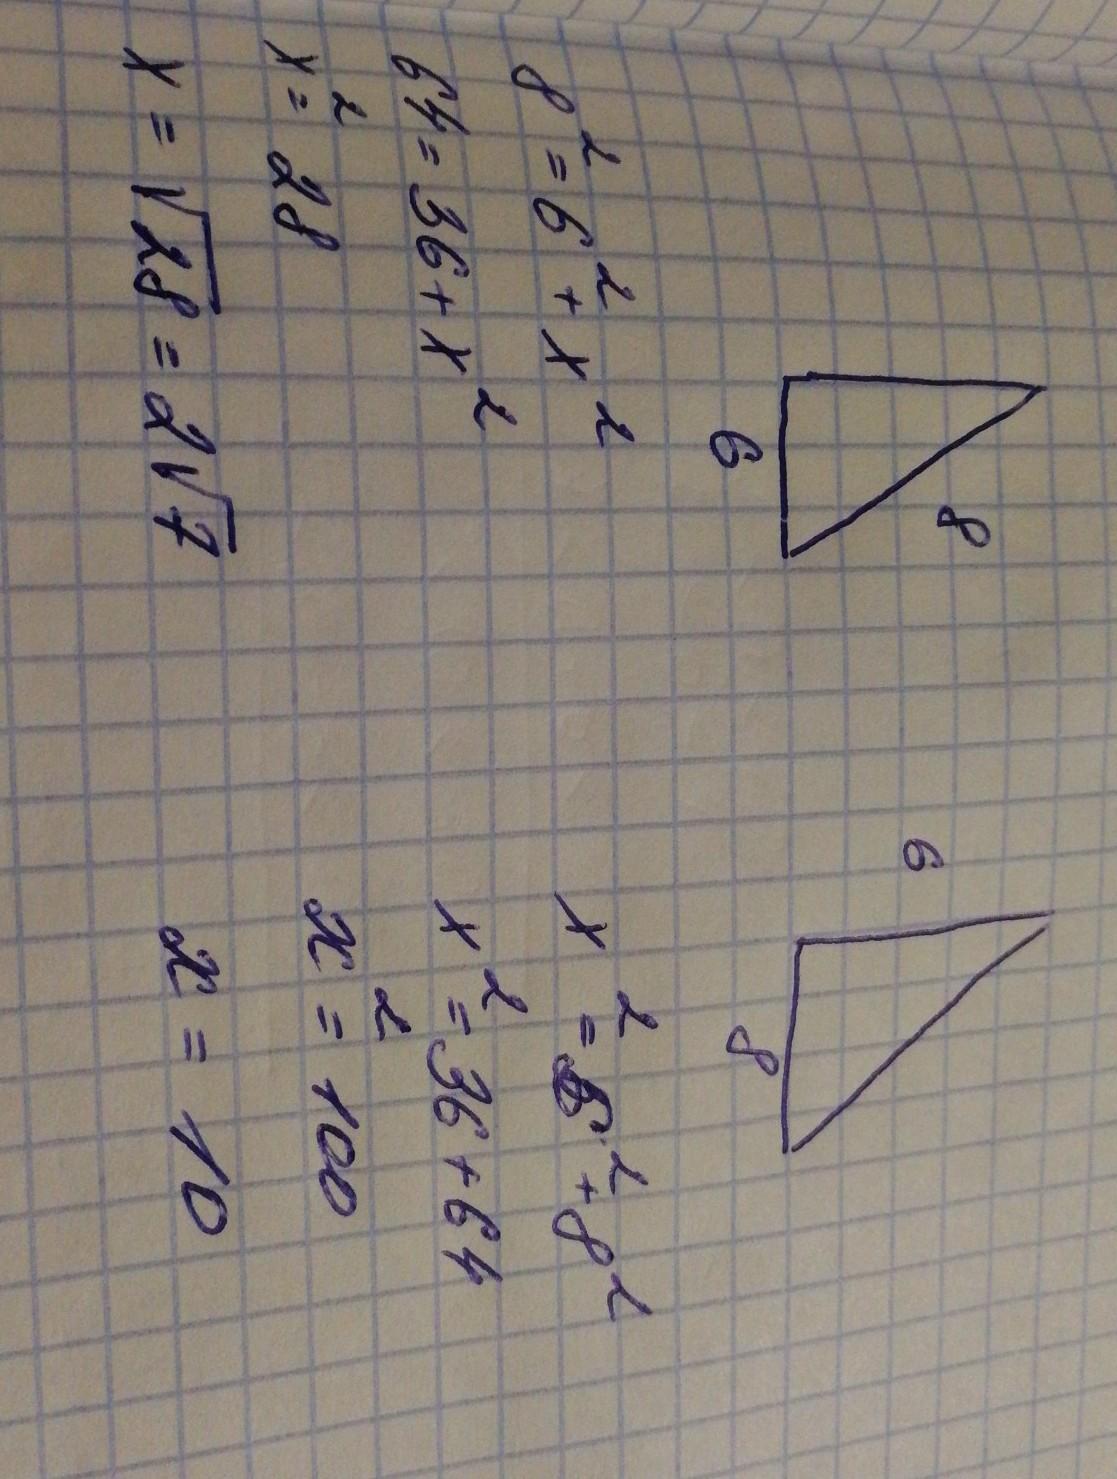 8
6
8² = 6² + x²
64 = 36 + x²
x² = 28
x = √28 = 2√7
6
8
x² = 6² + 8²
x² = 36 + 64
x² = 100
x = 10